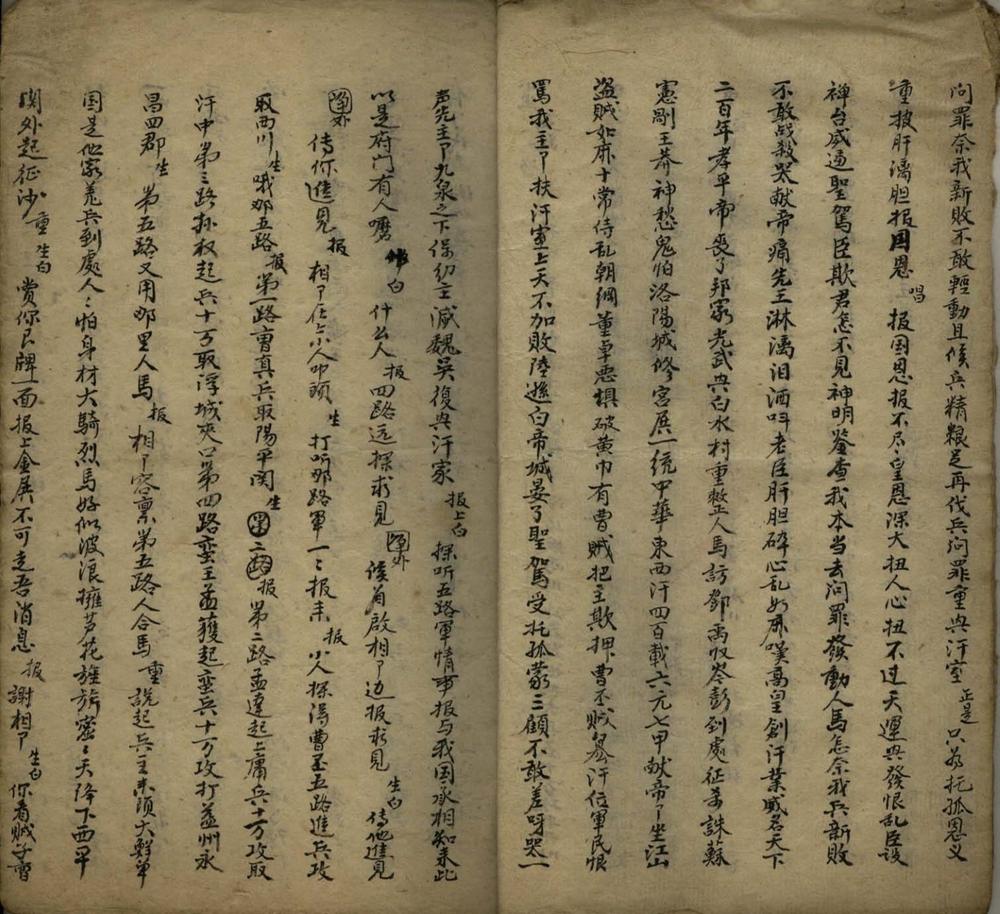 问罪奈我新敗不敢輕動且候兵精粮足再伐兵问罪重㒷汗室 正是 只为托孤恩义
重披肝漓胆报国恩 唱 报国恩报不尽皇恩深大扭人心扭不过天運㒷發恨乱臣设
禅台威逼聖駕臣欺君怎不見神明鉴查我本当去问罪發動人馬怎奈我兵新敗
不敢战殺哭献帝痛先王淋漓泪洒呌老臣肝胆碎心乱如麻嘆高皇創汗業威名天下
二百年孝平帝丧了邦家光武㒷白水村重整人馬訪鄧禹收岑彭到處征杀誅蘇
憲剮王莽神愁鬼怕洛陽城修宮展一統中華東西汗四百載六元七甲献帝丫坐江山
盗賊如麻十常侍乱朝綱董卓悪惧破黄巾有曹賊把主欺押曹丕賊篡汗位軍民恨
罵我主丫扶汗室上天不加敗陸遜白帝城晏了聖駕受托孤蒙三顧不敢差呀哭一
声先主丫九泉之下保幼主滅魏吳復㒷汗家 报上白 探听五路軍情事报与我国承相知来此
以是府门有人嚒 白 什么人 报 四路远探求見 外 候肖啟相丫边报求見 生白 传他進見
外 传你進見 报 相丫在上小人叩頭 生 打听那路軍一一报来 报 小人探得曹丕五路進兵攻
取西川 生 哦那五路 报 第一路曹真兵取陽平関 生 二路 报 第二路孟達起上庸兵十万攻取
汗中第三路孙权起兵十万取浮城夾口第四路蛮王孟獲起蛮兵十万攻打益州永
昌四郡 生 第五路又用那里人馬 报 相丫容禀第五路人合馬 重 説起兵主来頭大鮮卑
国是他家羌兵到處人人怕身材大騎烈馬好似波浪擁芦花旌旂密密天降下西平
関外起征沙 重 生白 赏你艮牌一面报上金展不可走吾消息 报 謝相丫 生白 你看賊子曹